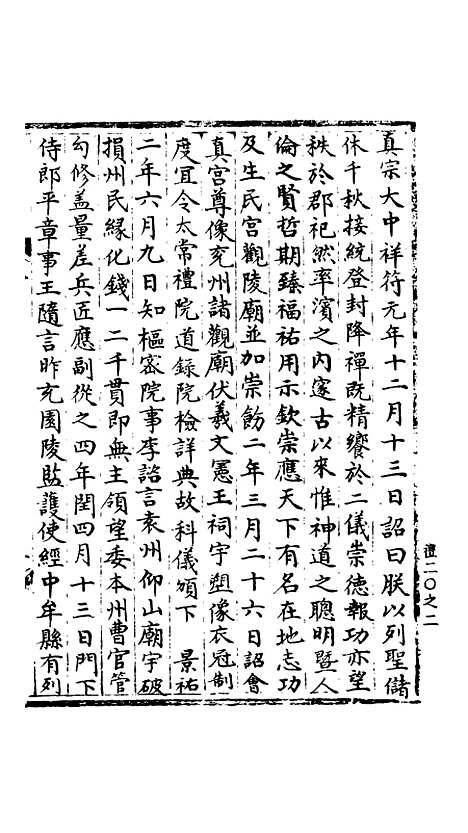 真宗大中祥符元年十二月十三日詔曰朕以列聖儲
休千秋接統登封降禪旣精饗於二儀崇德報功亦望
秩於郡祀然率濱之内邃古以來惟神道之聰明暨人
倫之賢哲期臻福祐用示欽崇應天下有名在地志功
及生民宮觀陵廟並加崇飭二年三月二十六日詔會
真宮尊像兖州諸觀廟伏羲文憲王祠宇塑像衣冠制
度宜令太常禮院道錄院檢詳典故科儀頒下 景祐
二年六月九日知樞密院事李諮言袁州仰山廟宇破
損州民緣化錢一二千貫即無主領望委本州曹官管
勾修盖量差兵匠應副從之四年閏四月十三日門下
侍郎平章事王隨言昨充園陵監護使經中牟縣有列
禮二〇之二